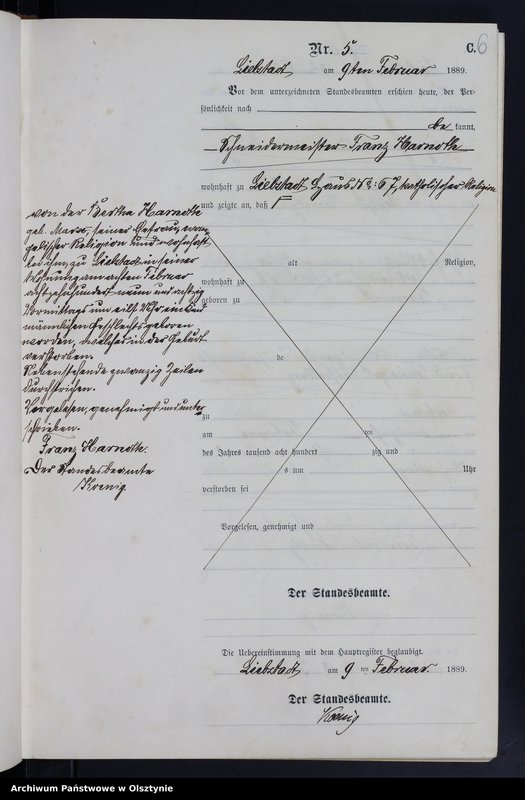 Nr. 5.
C. 6
Liebstadt am 9ten Februar 1889.
Vor dem unterzeichneten Standesbeamten erschien heute, der Per-
sönlichkeit nach
be kannt,
Schneidermeister Franz Harnoth
wohnhaft zu Liebstadt Haus N°: 67, katholischer Religion
und zeigte an, daß
von der Bertha Harnoth
geb. Marx, seiner Ehefrau, evan-
gelischer Religion und wohnhaft
bei ihm, zu Liebstadt in seiner
Wohnung am achten Februar
achtzehnhundert neun und achtzig
Vormittags um eilf Uhr ein Kind
männlichen Geschlechts geboren
worden, welches in der Geburt
verstorben.
Nebenstehende zwanzig Zeilen
durchstrichen.
Vorgelesen, genehmigt und unter-
schrieben.
Franz Harnoth.
Der Standesbeamte
Koenig
alt Religion,
wohnhaft zu
geboren zu
de
zu
am ten
des Jahres tausend acht hundert zig und
s um Uhr
verstorben sei
Vorgelesen, genehmigt und
Der Standesbeamte.
Die Uebereinstimmung mit dem Hauptregister beglaubigt.
Liebstadt am 9 ten Februar 1889.
Der Standesbeamte.
Koenig
Archiwum Państwowe w Olsztynie